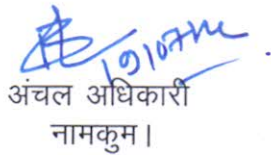 अंचल अधिकारी
नामकुम।